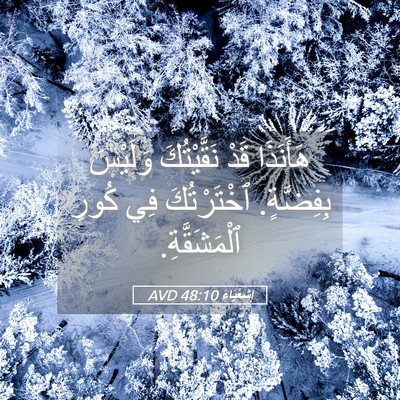 هَأَنَذَا قَدْ نَقَّيْتُكَ وَلَيْسَ
بِفِضَّةٍ. ٱخْتَرْتُكَ فِي كُورِ
ٱلْمَشَقَّةِ.
إشعياء 48:10 AVD